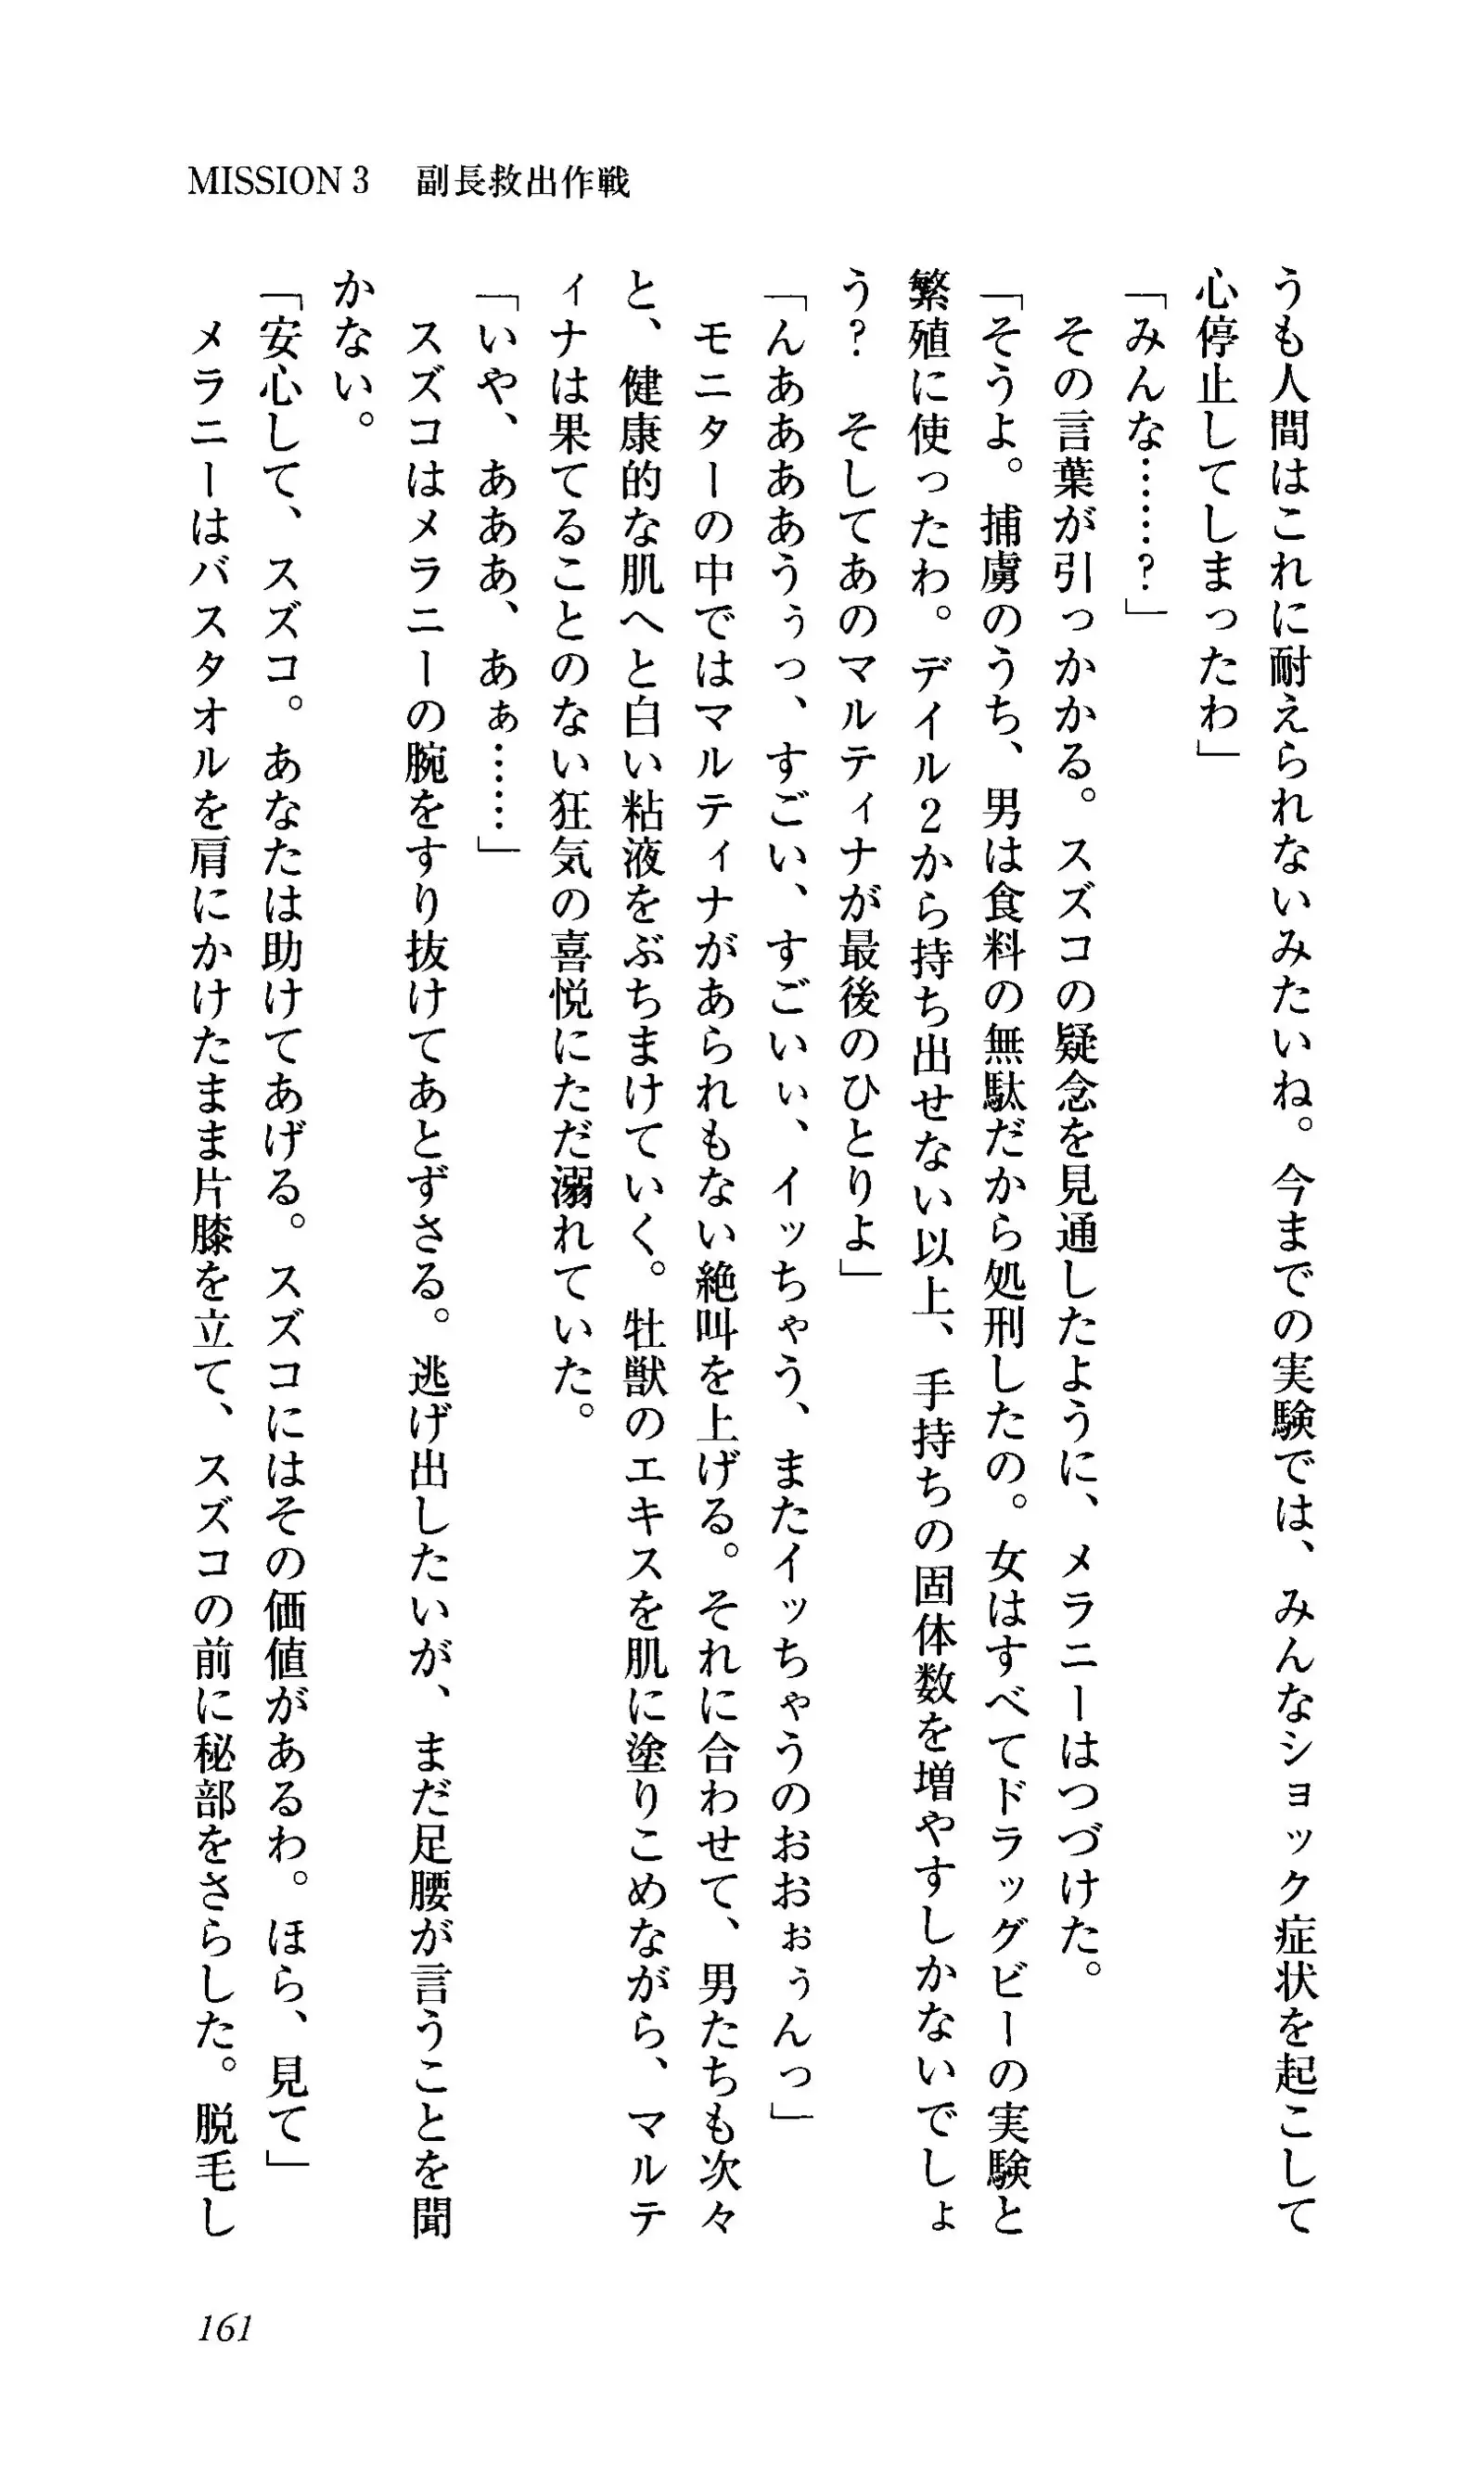 MISSION 3　副長救出作戦
うも人間はこれに耐えられないみたいね。今までの実験では、みんなショック症状を起こして
心停止してしまったわ」
「みんな……？」
その言葉が引っかかる。スズコの疑念を見通したように、メラニーはつづけた。
「そうよ。捕虜のうち、男は食料の無駄だから処刑したの。女はすべてドラッグビーの実験と
繁殖に使ったわ。デイル２から持ち出せない以上、手持ちの固体数を増やすしかないでしょ
う？　そしてあのマルティナが最後のひとりよ」
「んああああうぅっ、すごい、すごいぃ、イッちゃう、またイッちゃうのおおぉぅんっ」
モニターの中ではマルティナがあられもない絶叫を上げる。それに合わせて、男たちも次々
と、健康的な肌へと白い粘液をぶちまけていく。牡獣のエキスを肌に塗りこめながら、マルテ
ィナは果てることのない狂気の喜悦にただ溺れていた。
「いや、あああ、あぁ……」
スズコはメラニーの腕をすり抜けてあとずさる。逃げ出したいが、まだ足腰が言うことを聞
かない。
「安心して、スズコ。あなたは助けてあげる。スズコにはその価値があるわ。ほら、見て」
メラニーはバスタオルを肩にかけたまま片膝を立て、スズコの前に秘部をさらした。脱毛し
161